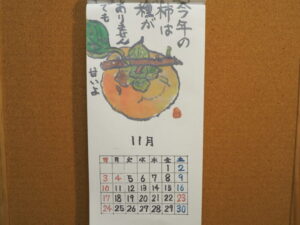 今年の
柿は
種が
ありません
でも
甘いよ
11月
日 月 火 水 木 金 土
1 2
3 4 5 6 7 8 9
10 11 12 13 14 15 16
17 18 19 20 21 22 23
24 25 26 27 28 29 30